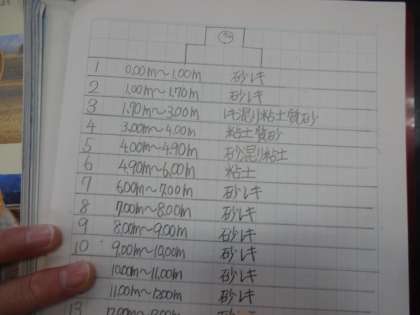 1 0.00m～1.00m 砂レキ
2 1.00m～1.70m 砂レキ
3 1.70m～3.00m レキ混り粘土質砂
4 3.00m～4.00m 粘土質砂
5 4.00m～4.90m 砂混り粘土
6 4.90m～6.00m 粘土
7 6.00m～7.00m 砂レキ
8 7.00m～8.00m 砂レキ
9 8.00m～9.00m 砂レキ
10 9.00m～10.00m 砂レキ
10.00m～11.00m 砂レキ
11.00m～12.00m 砂レキ
13